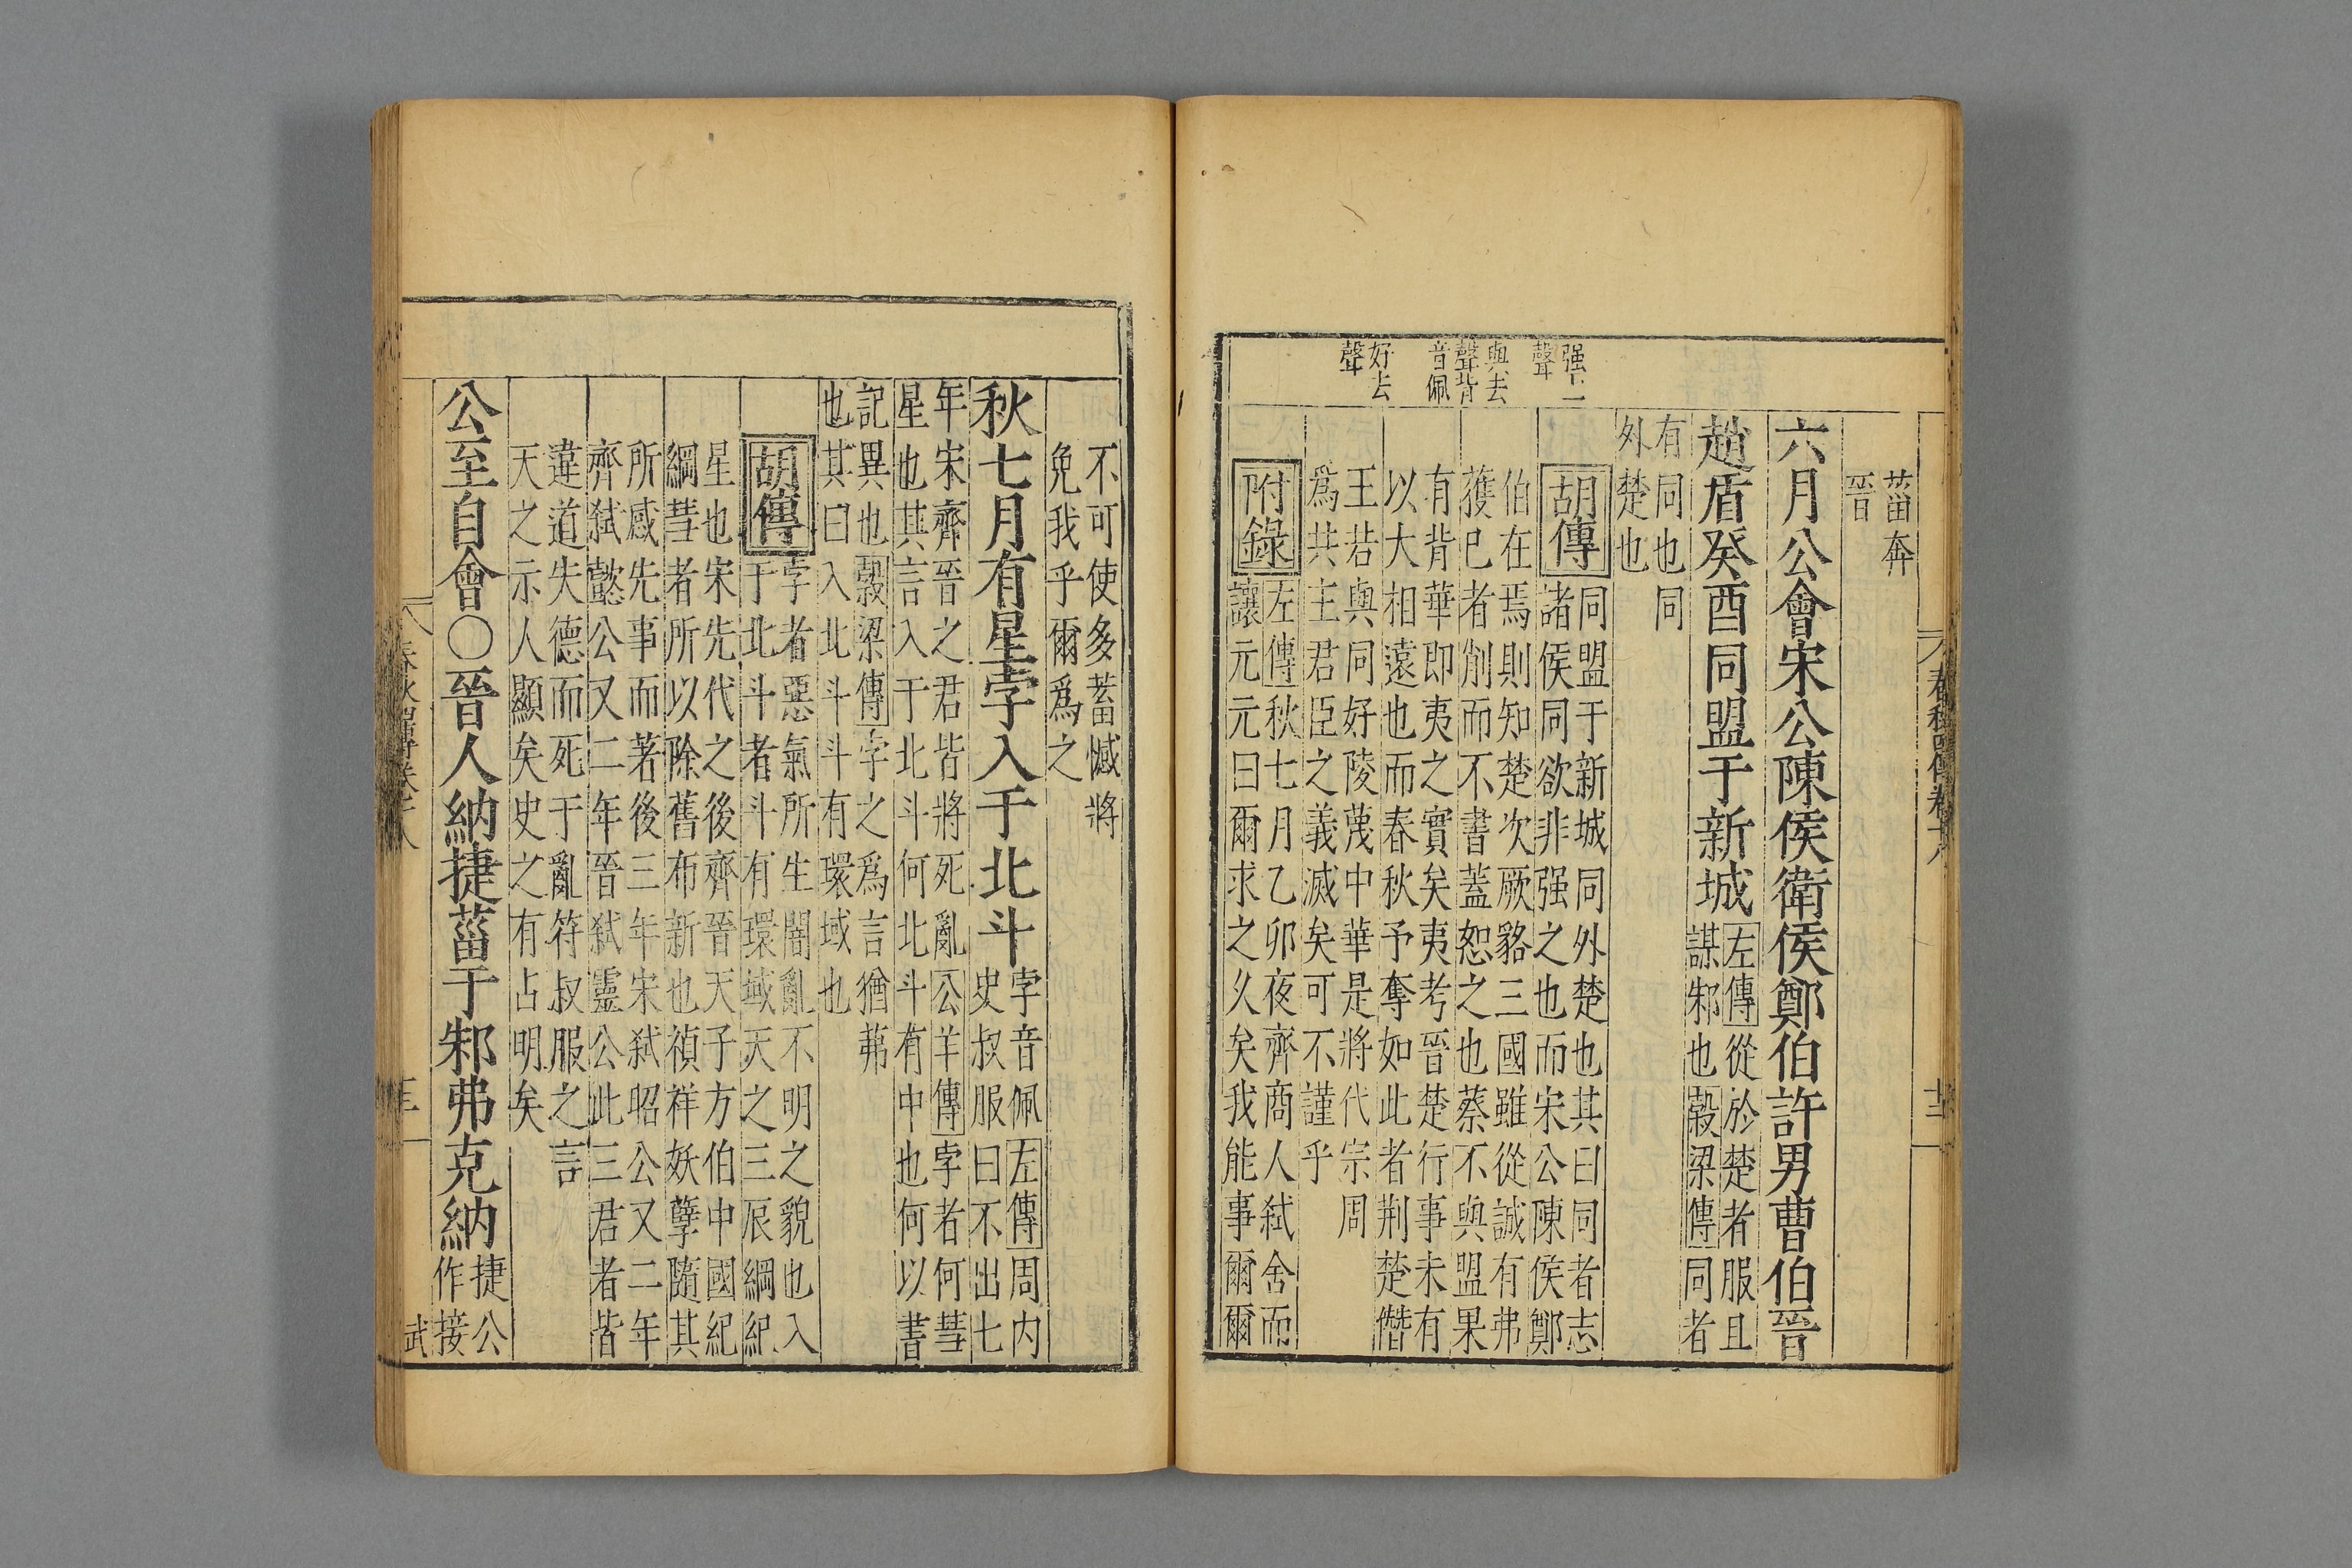 菑奔
晉
六月公會宋公陳侯衛侯鄭伯許男曹伯晉
趙盾癸酉同盟于新城
左傳從於楚者服且
謀邾也穀梁傳同者
有同也同
外楚也
胡傳
同盟于新城同外楚也其曰同者志
諸侯同欲非强之也而宋公陳侯鄭
伯在焉則知楚次厥貉三國雖從誠有弗
獲已者削而不書蓋恕之也蔡不與盟果
有背華即夷之實矣夷考晉楚行事未有
以大相遠也而春秋予奪如此者荆楚僭
王若與同好陵蔑中華是將代宗周
爲共主君臣之義滅矣可不謹乎
附錄
左傳秋七月乙卯夜齊商人弑舍而
讓元元曰爾求之久矣我能事爾爾
强上
聲
與去
聲背
音佩
好去
聲
春秋四傳卷十八
不可使多蓄憾將
免我乎爾爲之
秋七月有星孛入于北斗
孛音佩左傳周内
史叔服曰不出七
年宋齊晉之君皆將死亂公羊傳孛者何彗
星也其言入于北斗何北斗有中也何以書
記異也穀梁傳孛之爲言猶茀
也其曰入北斗斗有環域也
胡傳
孛者惡氣所生闇亂不明之貌也入
于北斗者斗有環域天之三辰綱紀
星也宋先代之後齊晉天子方伯中國紀
綱彗者所以除舊布新也禎祥妖孽隨其
所感先事而著後三年宋弑昭公又二年
齊弑懿公又二年晉弑靈公此三君者皆
違道失德而死于亂符叔服之言
天之示人顯矣史之有占明矣
公至自會○晉人納捷菑于邾弗克納
捷公
作接
武